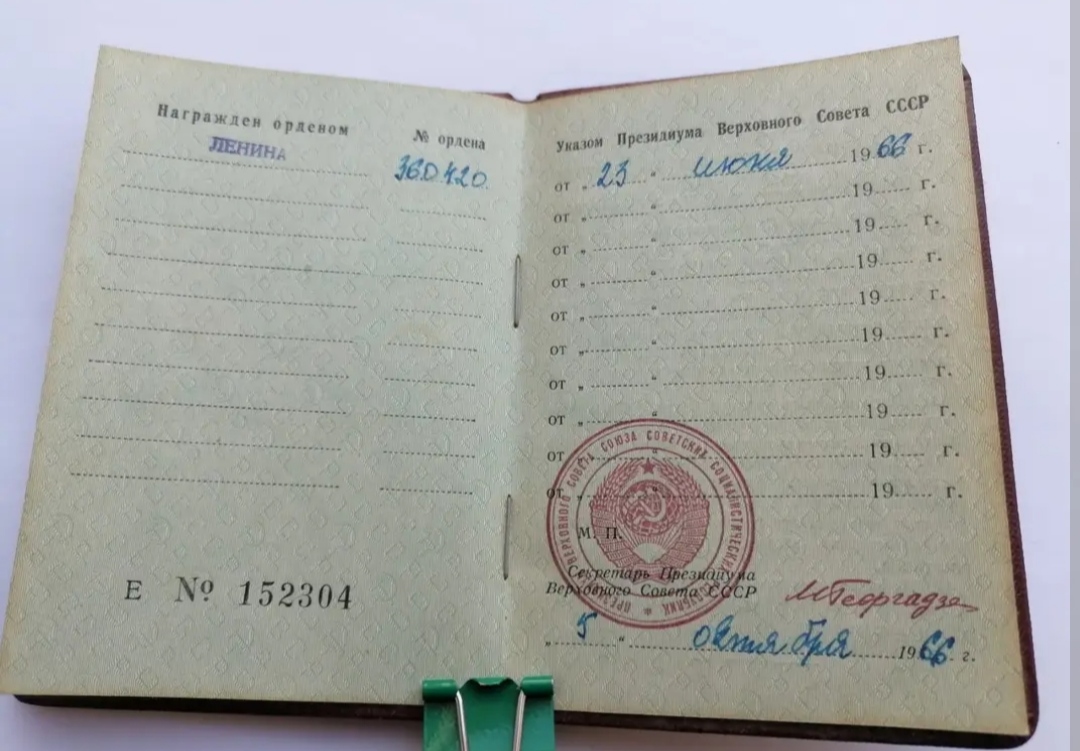 Награжден орденом
№ ордена
ЛЕНИНА
360420
Е № 152304
Указом Президиума Верховного Совета СССР
от „ 23 “ июня 1966 г.
от „ “ 19 г.
от „ “ 19 г.
от „ “ 19 г.
от „ “ 19 г.
от „ “ 19 г.
от „ “ 19 г.
от „ “ 19 г.
от „ “ 19 г.
от „ “ 19 г.
ПРЕЗИДИУМ ВЕРХОВНОГО СОВЕТА СОЮЗА СОВЕТСКИХ СОЦИАЛИСТИЧЕСКИХ РЕСПУБЛИК
М. П.
Секретарь Президиума
Верховного Совета СССР
МГеоргадзе
„ 5 “ октября 1966 г.